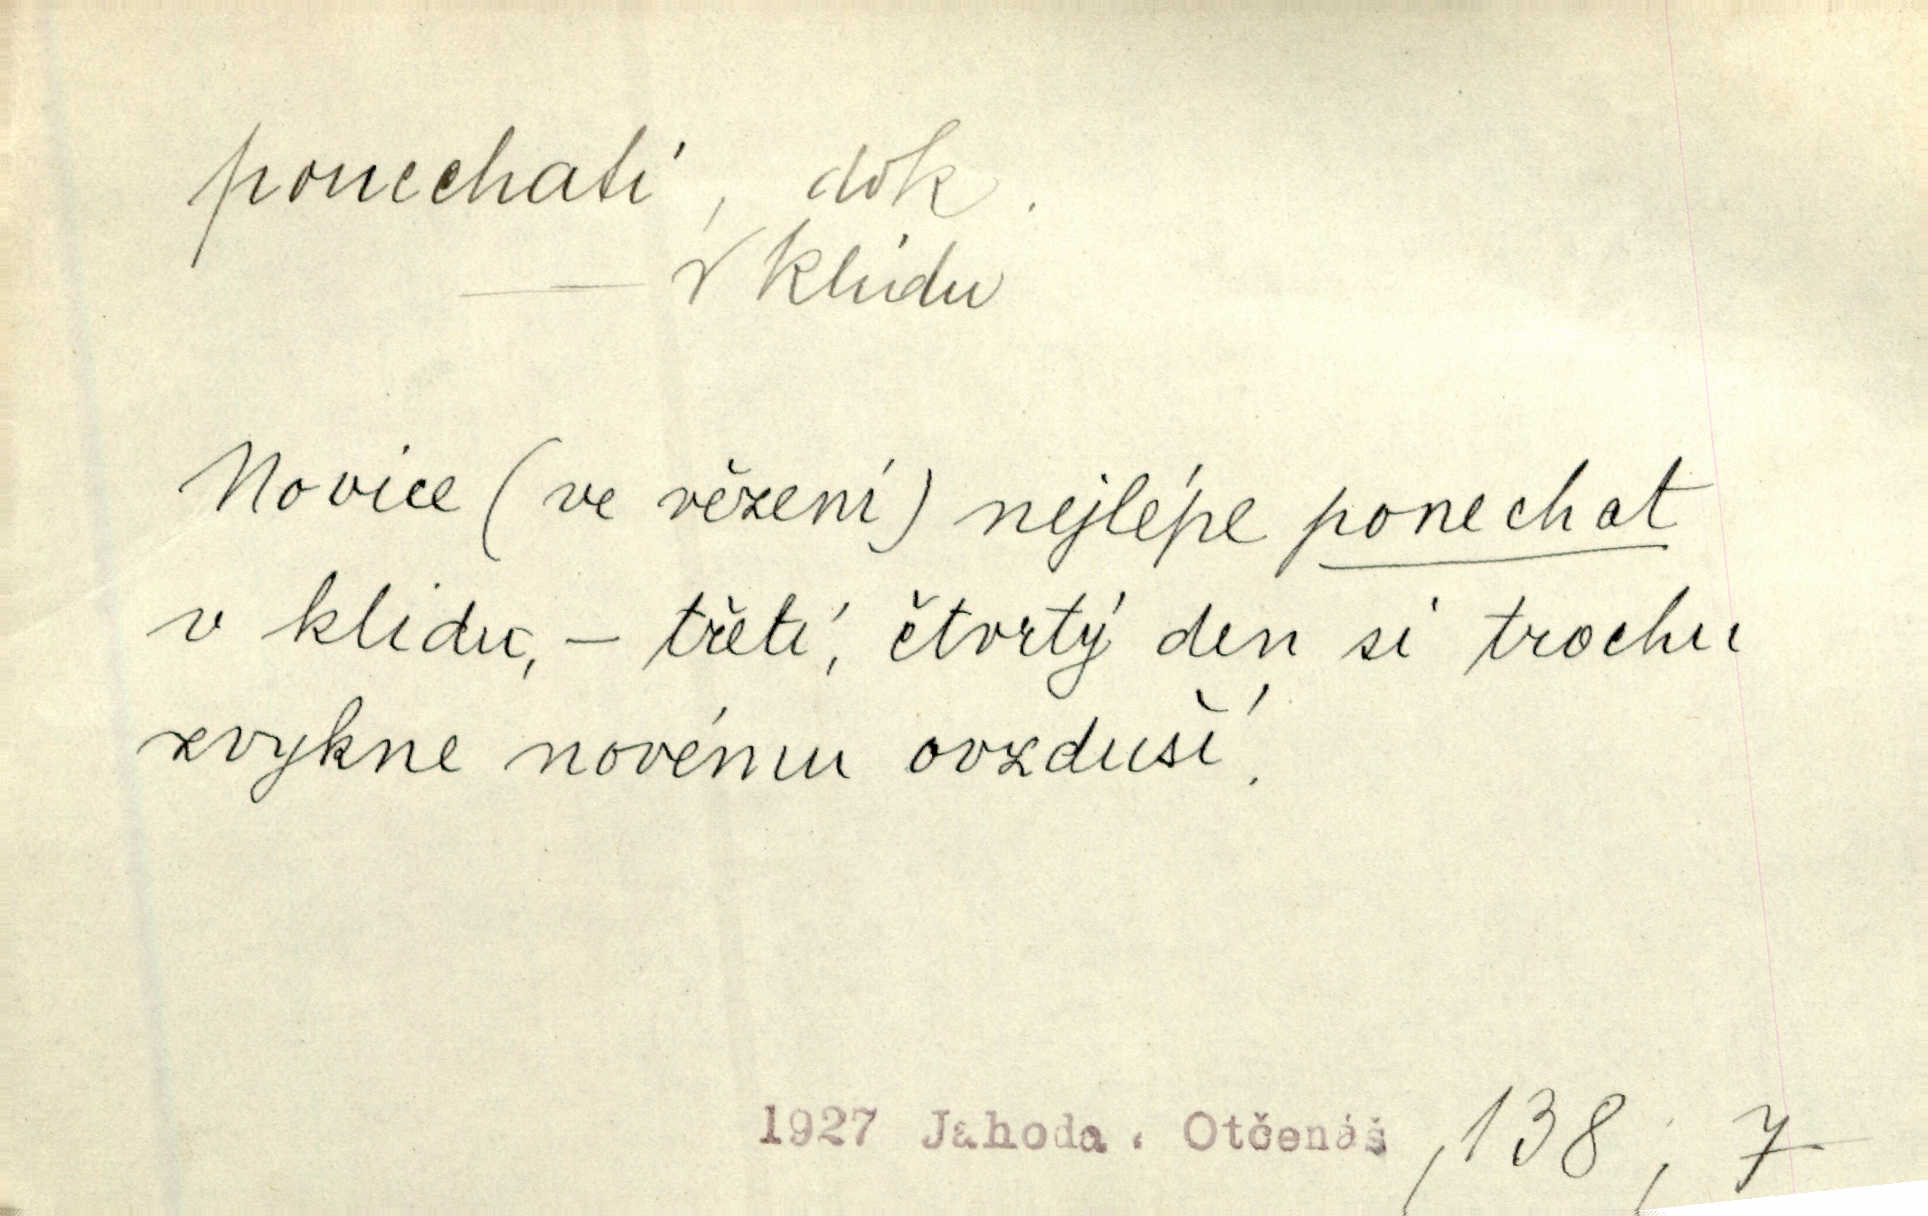 ponechati, dok.
— v klidu
Novice (ve vězení) nejlépe ponechat
v klidu, – třetí, čtvrtý den si trochu
zvykne novému ovzduší.
1927 Jahoda . Otčenáš , 138 ; 7